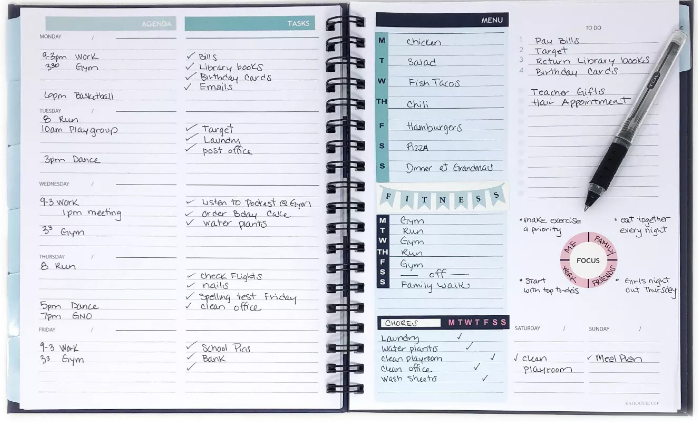 AGENDA
TASKS
MONDAY /
9-3pm Work
3:30 Gym
6pm Basketball
✓ Bills
✓ Library books
✓ Birthday Cards
✓ Emails
TUESDAY /
8 Run
10am Playgroup
3pm Dance
✓ Target
✓ Laundry
✓ post office
WEDNESDAY /
9-3 Work
1pm meeting
3:30 Gym
✓ Listen to Podcast @ Gym
✓ order Bday Cake
✓ water plants
THURSDAY /
8 Run
5pm Dance
7pm GNO
✓ check Flights
✓ nails
✓ Spelling test Friday
✓ clean office
FRIDAY /
9-3 Work
3:30 Gym
✓ School Pics
✓ Bank
✓
MENU
M Chicken
T Salad
W Fish Tacos
TH Chili
F Hamburgers
S Pizza
S Dinner at Grandmas
FITNESS
M Gym
T Run
W Gym
TH Run
F Gym
S off
S Family Walk
CHORES M T W T F S S
Laundry ✓
Water plants ✓
clean playroom ✓
clean office ✓
Wash Sheets ✓
TO DO
1 Pay Bills
2 Target
3 Return Library books
4 Birthday Cards
Teacher Gifts
Hair Appointment
• make exercise a priority
• eat together every night
ME
FAMILY
FOCUS
WORK
FRIENDS
• Start with top to-dos
• Girls night out Thursday
SATURDAY /
✓ clean
playroom
SUNDAY /
✓ Meal Plan